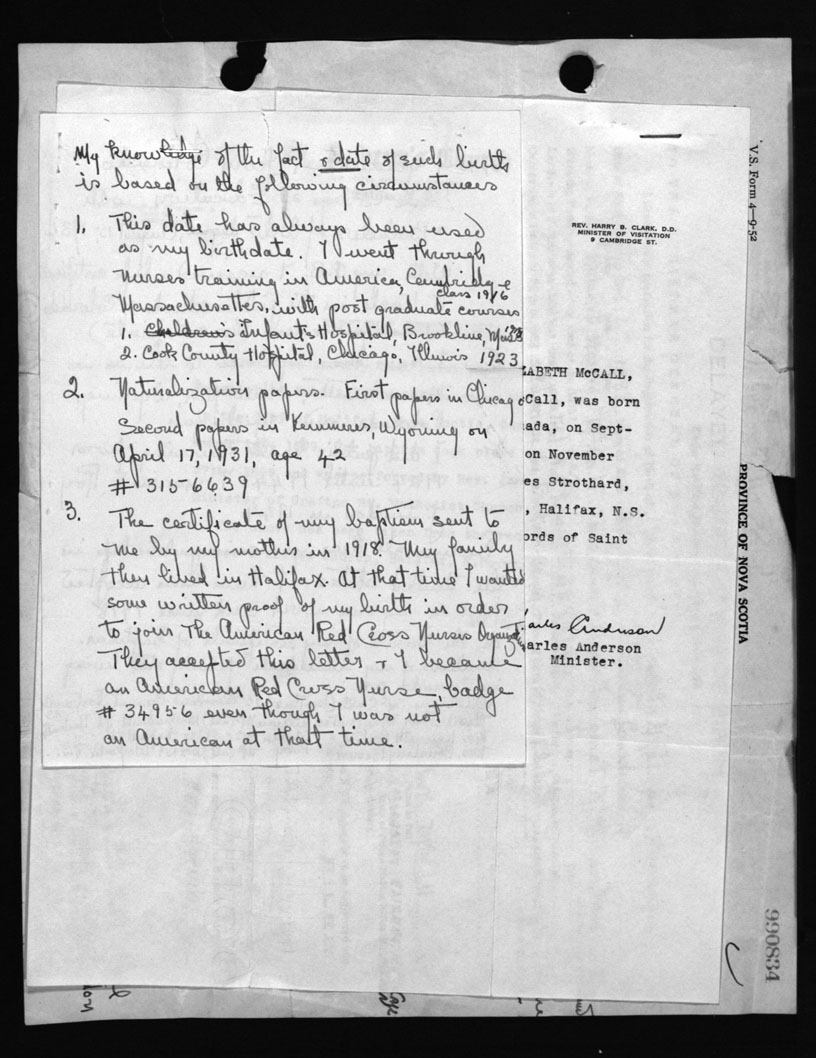 My knowledge of the fact & date of such birth
is based on the following circumstances
1. This date has always been used
as my birthdate. I went through
nurses training in America, Cambridge
class 1916
Massachusettes, with post graduate courses
1. Children's Infants Hospital, Brookline, Mass
2. Cook County Hospital, Chicago, Illinois 1923
2. Naturalization papers. First papers in Chicago
Second papers in Kemmerer, Wyoming on
April 17, 1931, age 42
# 3156639
3. The certificate of my baptism sent to
me by my mother in 1918. My family
then lived in Halifax. At that time I wanted
some written proof of my birth in order
to join The American Red Cross Nurses
They accepted this letter & I became
an American Red Cross Nurse, badge
# 34956 even though I was not
an American at that time.
REV. HARRY B. CLARK, D.D.
MINISTER OF VISITATION
9 CAMBRIDGE ST.
ABETH McCALL,
Call, was born
ada, on Sept-
on November
es Strothard,
, Halifax, N.S.
ords of Saint
arles Anderson
arles Anderson
Minister.
V.S. Form 4—9-52
PROVINCE OF NOVA SCOTIA
990834